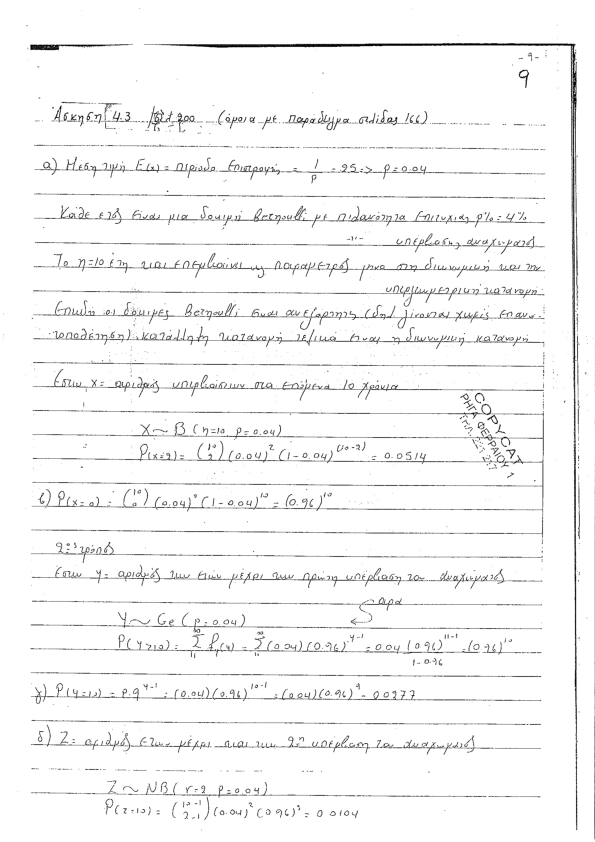 -9-
9
Άσκηση 4.3 200 (όμοια με παράδειγμα σελίδας 166)
α) Μέση τιμή E(x) = περίοδο Επιστροφής = 1/p = 25 => p = 0.04
Κάθε έτος είναι μια δοκιμή Bernoulli με πιθανότητα Επιτυχίας p% = 4%
-"- υπέρβασης αναχώματος
Το η=10 έτη και επεμβαίνει ως παράμετρος μόνο στη διωνυμική και την
υπεργεωμετρική κατανομή.
Επειδή οι δοκιμές Bernoulli είναι ανεξάρτητη (δηλ γίνονται χωρίς επανα-
τοποθέτηση) κατάλληλη κατανομή τελικά είναι η διωνυμική κατανομή
Έστω x = αριθμός υπερβάσεων στα επόμενα 10 χρόνια
X ~ B (η=10 p=0.04)
P(x=2) = (10 2) (0.04)^2 (1-0.04)^(10-2) = 0.0514
COPYCAT
ΡΗΓΑ ΦΕΡΡΑΙΟΥ 1
β) P(x=0) = (10 0) (0.04)^0 (1-0.04)^10 = (0.96)^10
2ος τρόπος
Έστω y = αριθμός των ετών μέχρι την πρώτη υπέρβαση του αναχώματος
άρα
Y ~ Ge (p=0.04)
P(Y>10) = Σ_11^∞ f_y(y) = Σ_11^∞ (0.04)(0.96)^y-1 = 0.04 (0.96)^11-1 / 1-0.96 = (0.96)^10
γ) P(y=10) = p.q^y-1 = (0.04)(0.96)^10-1 = (0.04)(0.96)^9 = 0.0277
δ) Z = αριθμός ετών μέχρι και την 2η υπέρβαση του αναχώματος
Z ~ NB (r=2 p=0.04)
P(z=10) = (10-1 2-1) (0.04)^2 (0.96)^8 = 0.0104